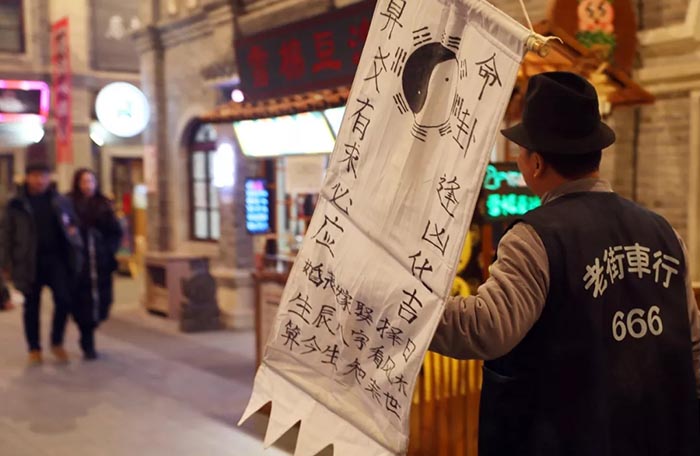 命卦逢凶化吉
算爻有求必应
婚丧嫁娶择日
生辰八字看风水
算今生知来世
老街車行
666